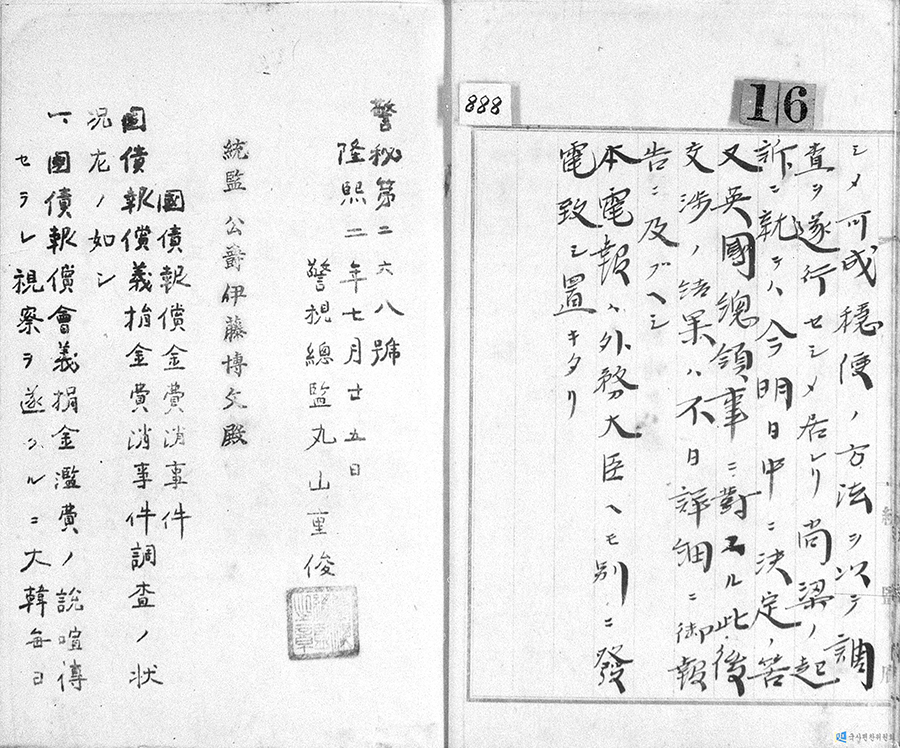 16
シメ可成穏便ノ方法ヲ以テ調
査ヲ遂行セシメ居レリ尚梁ノ起
訴ニ就テハ今明日中ニ決定ノ筈
又英國總領事ニ對スル此後
交渉ノ結果ハ不日詳細ニ御報
告ニ及ブヘシ
本電報ハ外務大臣ヘモ別ニ發
電致シ置キタリ
888
警秘第二六八號
隆熙二年七月廿五日
警視總監丸山重俊
統監公爵伊藤博文殿
國債報償金費消事件
國債報償義捐金費消事件調査ノ状
況左ノ如シ
一、國債報償會義捐金濫費ノ說喧傳
セラレ視察ヲ遂クルニ大韓每日
국사편찬위원회